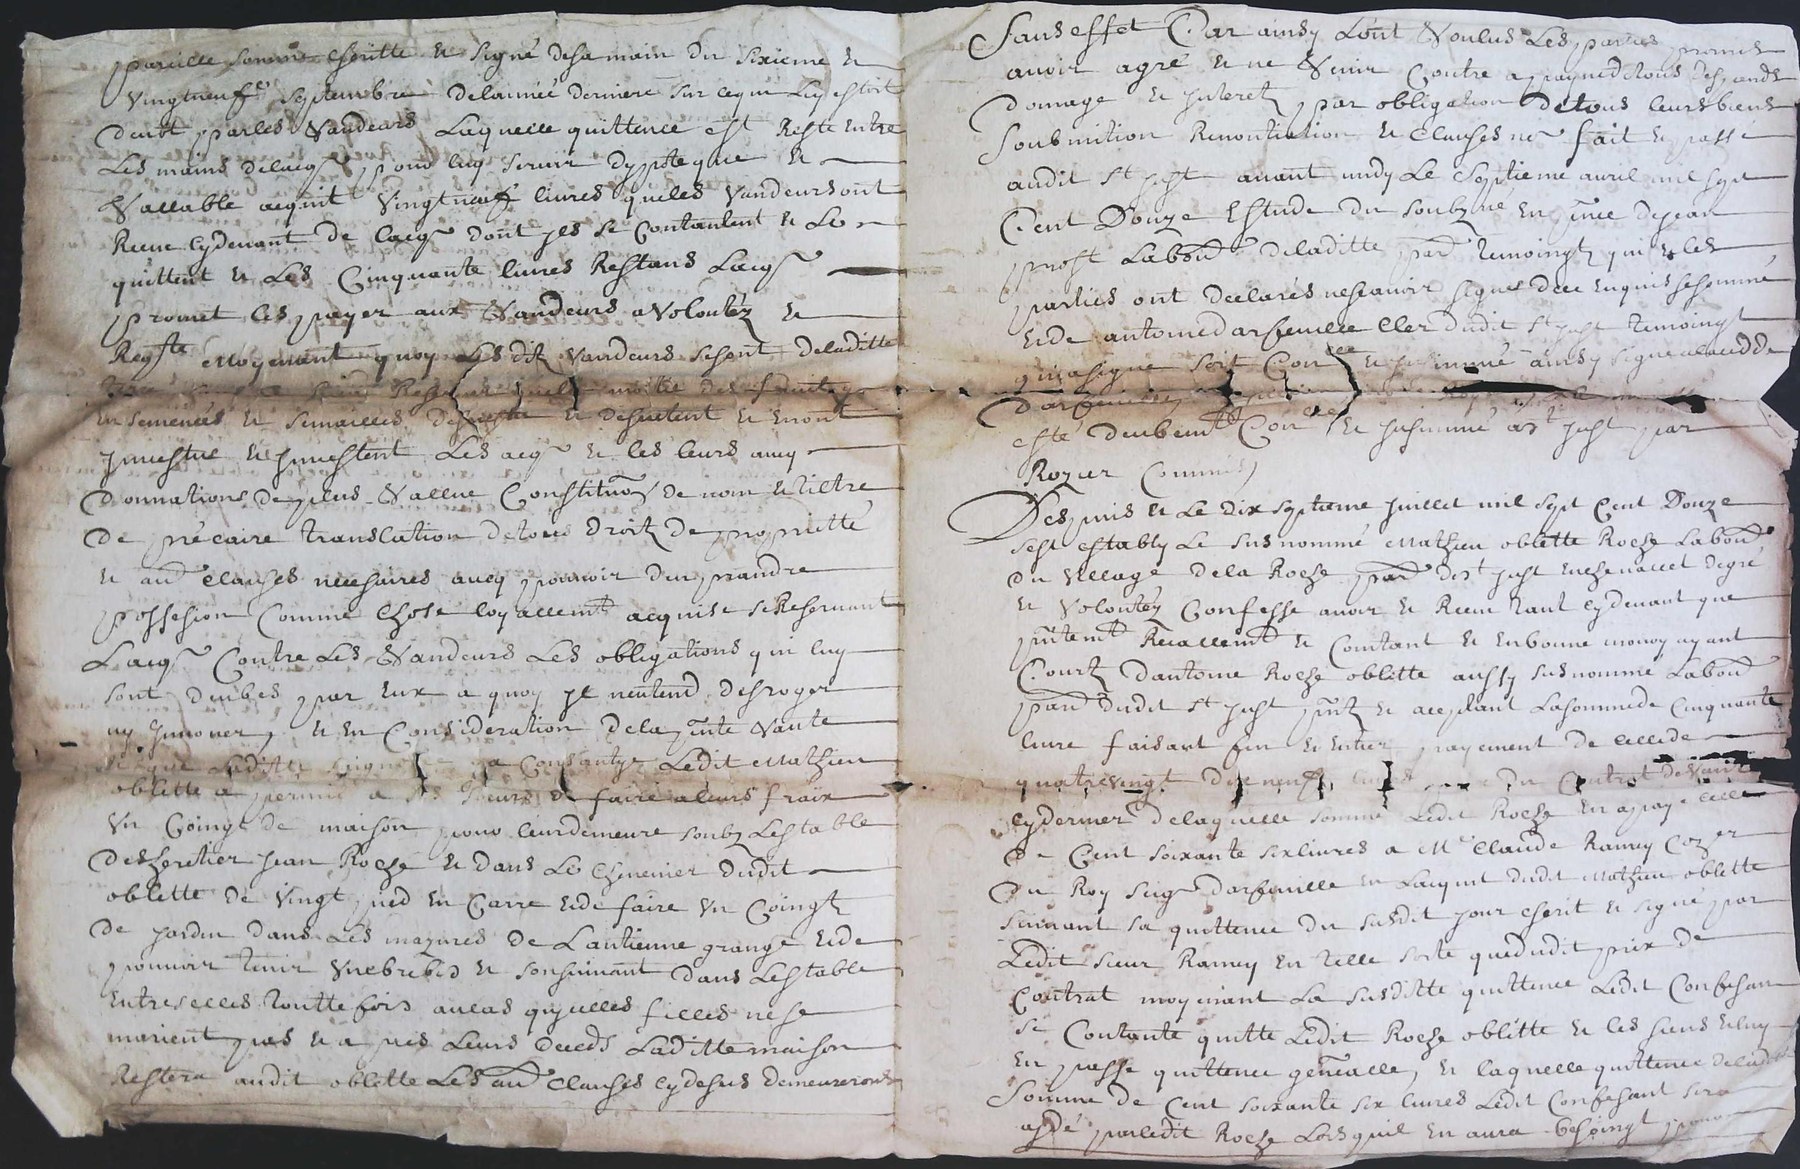 pareille somme escritte et signé desa main du sixieme et
vingtneufe septembre delannée derniere sur cequi luy estoit
deubt parles vandeurs Laquelle quittence est Reste entre
Les mains delacqr pour luy servir dypoteque et
Vallable acquit vingtneuf livres queles vandeurs ont
Reeue cydevant de lacqr dont jls se Contantent et Lo
quittent et Les Cinquante livres Restans Lacqr
promet les payer aux vandeurs a volontéz et
Reqste Moyenant quoy Les dit vandeurs sesont deladitte
moitié des fruits
ensemencés et semailles desvestu et desvetent et enont
jnvestue et jnvestent Les acqr et les leurs avecq
Donnations de plus vallue Constituon de nom et tiltre
De précaire translation detous droitz de propriette
et aud clauses necesaires avecq pouvoir den prandre
possession Comme chose loyallemt acquise seReservant
Lacqr Contre Les vandeurs Les obligations qui luy
sont deubes par eux a quoy jl nentend desroger
ny jnnover, et en Consideration dela pnte vante
Ledit Mathieu
oblette a permis a ses faire aleurs fraix
vn Coingt de maison pour leurdemeure soubz Lestable
Desheretier Jean Roche et dans Le Chenevier dudit
oblette de vingt pied en Carre etde faire vn Coingt
De jardin dans Les mazures de Lantienne grange etde
pouvoir tenir vnebrebis et sonsuivant dans Lestable
entreselles touttefois aucas quelles filles nese
marient pas et apres Leurs deceds Laditte maison
Restera audit oblette Les aud Clauses cydesus demeureront
Sans effet Car ainsy Lont voulus Les parties promis
avoir agré et ne venir Contre apayned tous despands
Domage et jnteretz par obligation detous leursbiens
Soubmition Renontiation et Clauses nes fait et passé
audit st just avant midy Le septieme avril mil sept
Cent Douze Estude du soubzne en pnce dejean
prost Labour deladitte parr temoingtz qui et les
parties ont declarés nescavoir signer dece enquis sesommé
etde antoinedarfeuille Cler dudit st just temoingt
quiasigne soit Conlle et jnsinué ainsy signealaced de
Darfeuille
esté deubemt Conlle et jnsinué ast just par
Rozier Commis
Despuis et Le dix septieme juillet mil sept Cent Douze
sest estably Le susnommé Mathieu oblette Roche Labour
Du village dela Roche parr dest just enchevallet degré
et volontéz Confesse avoir et Reeue tant cydevant que
pntemt Reallemt et Contant et enbonne monoy ayant
Courtz dantoine Roche oblette aussy susnommé Labour
parr dudit st just pnt et aceptant Lasommede Cinquante
livre faisant fin et entier payement de cellede
quatrevingt dixneuf livres du Contrat devante
cydernier delaquelle somme Ledit Roche en apaye celle
De Cent soixante sixlivres a Mr Claude Ramey Coer
Du Roy seigr darfeuille en Lacquit dudit Mathieu oblette
suivant sa quittence du susdit jour escrit et signé par
Ledit sieur Ramey en telle sorte quedudit prix de
Contrat moyenant La susditte quittence Ledit Confesant
se Contante quitte Ledit Roche oblette et les siens etluy
en passe quittence genéralle, et laquelle quittence deladite
Somme de Cent soixante six livres Ledit Confesant sera
aydé parledit Roche Lorsquil en aura besoingt pour